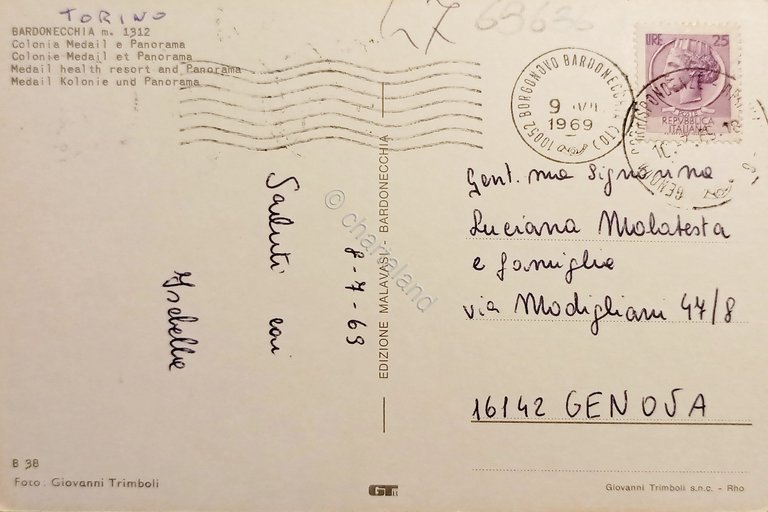 TORINO
BARDONECCHIA m. 1312
Colonia Medail e Panorama
Colonie Medail et Panorama
Medail health resort and Panorama
Medail Kolonie und Panorama
47 63636
10052 BORGONOVO BARDONECCHIA (TO)
9
1969
LIRE 25
POSTE
REPUBBLICA
ITALIANA
CORRISPONDENZE
GENOVA
EDIZIONE MALAVASI - BARDONECCHIA
© chartaland
8-7-69
Saluti cari
Isabella
Gent.ma Signorina
Luciana Malatesta
e famiglia
via Modigliani 47/8
16142 GENOVA
B 38
Foto: Giovanni Trimboli
GT
Giovanni Trimboli s.n.c. - Rho